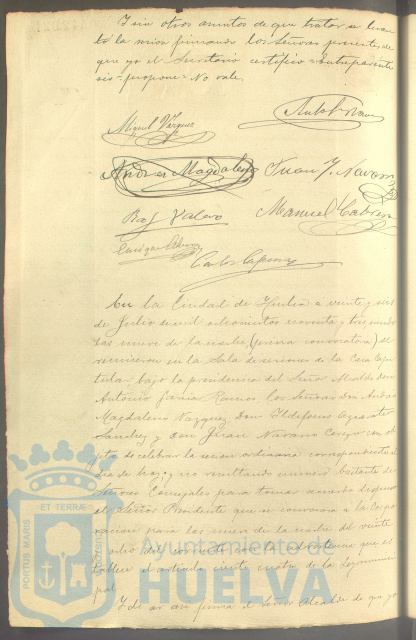 Y sin otros asuntos de que tratar se levan
tó la sesion firmando los Señores presentes, de
que yo el Secretario certifico = Entreparente
sis = propone = No vale.
Miguel Vazquez
Andres Magdaleno
Juan J. Navarro
Raf Valero
Manuel Cabrera
Enrique
Carlos
En la Ciudad de Huelva a veinte y seis
de Julio de mil ochocientos noventa y tres, siendo
las nueve de la noche, (primera convocatoria) se
reunieron en la Sala de sesiones de la Casa Capi
tular bajo la presidencia del Señor Alcalde don
Antonio Ramos, los Señores Don Andres
Magdaleno Vazquez, Don Ildefonso
Sanchez y Don Juan Navarro con ob
jeto de celebrar la sesion ordinaria correspondiente al
dia de hoy; y no resultando numero bastante de
Señores Concejales para tomar acuerdo dispuso
el Señor Presidente que se convocara a la Corpo
racion para las nueve de la noche del veinte
y ocho del corriente con la advertencia que es
tablece el articulo ciento cuatro de la Ley munici
pal.
Y de ser asi firma el Señor Alcalde de que yo
PORTUS MARIS
ET TERRÆ
CUSTODIA
Ayuntamiento de
HUELVA